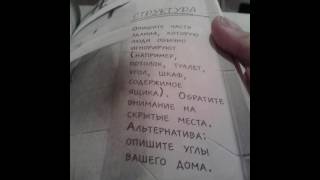 СТРУКТУРА
Опишите части
здания, которую
люди обычно
игнорируют
(например,
потолок, туалет,
угол, шкаф,
содержимое
ящика). Обратите
внимание на
скрытые места.
Альтернатива:
опишите углы
вашего дома.